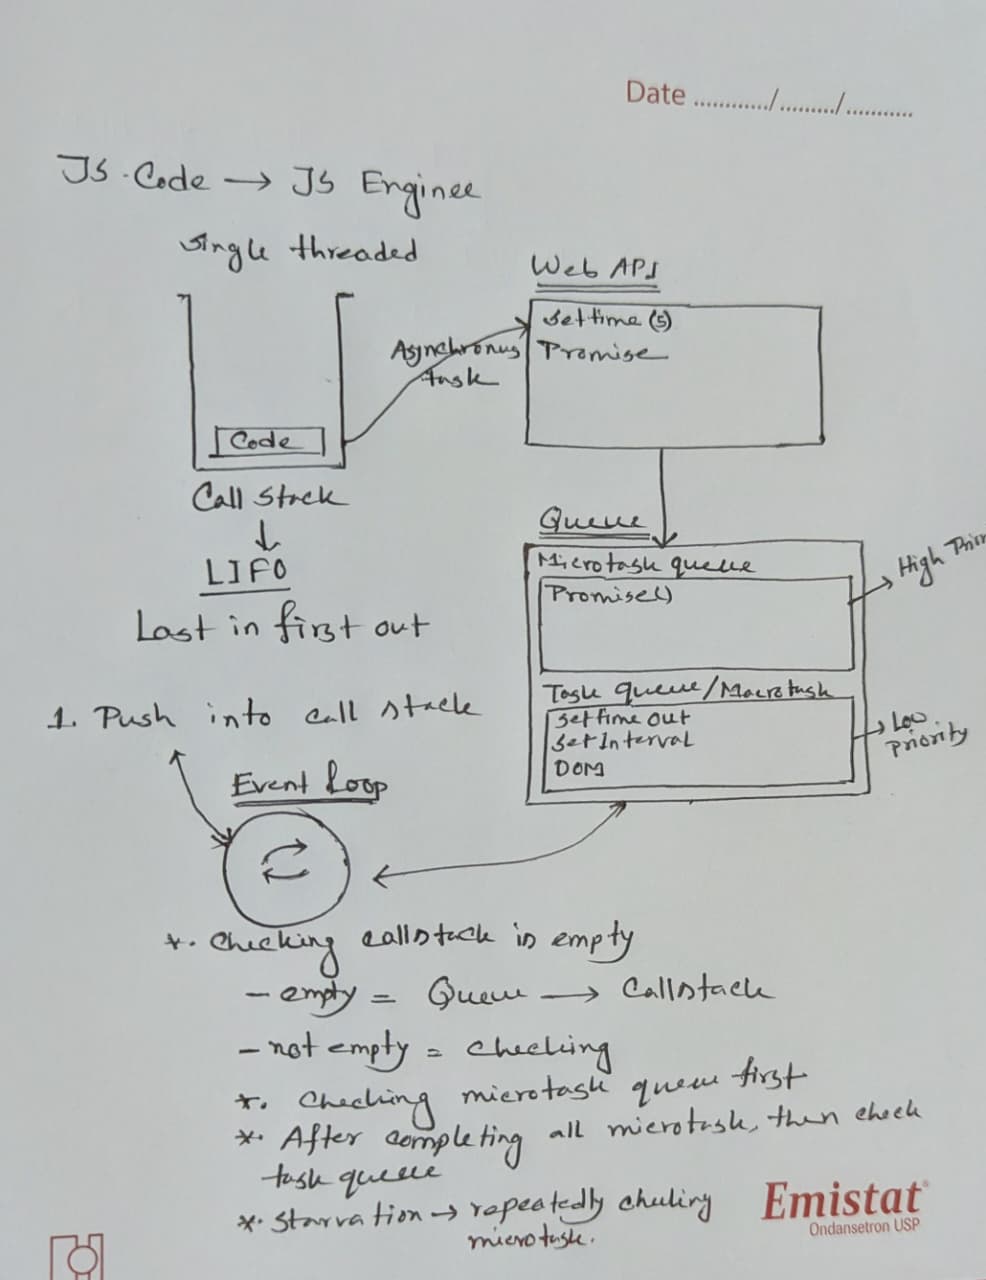 Date ............/........./...........
JS Code → JS Enginee
single threaded
Web API
Settime (5)
Promise
Asynchronus
task
Code
Call Stack
↓
LIFO
Last in first out
Queue
Microtask queue
Promise()
High Prior
Task queue/Macrotask
Set time out
Set Interval
DOM
Low
Priority
1. Push into call stack
Event Loop
*. Checking callstack is empty
- empty = Queue → Callstack
- not empty = checking
*. Checking microtask queue first
*. After completing all microtask, then check
task queue
*. Starvation → repeatedly chuling
microtask.
Emistat®
Ondansetron USP